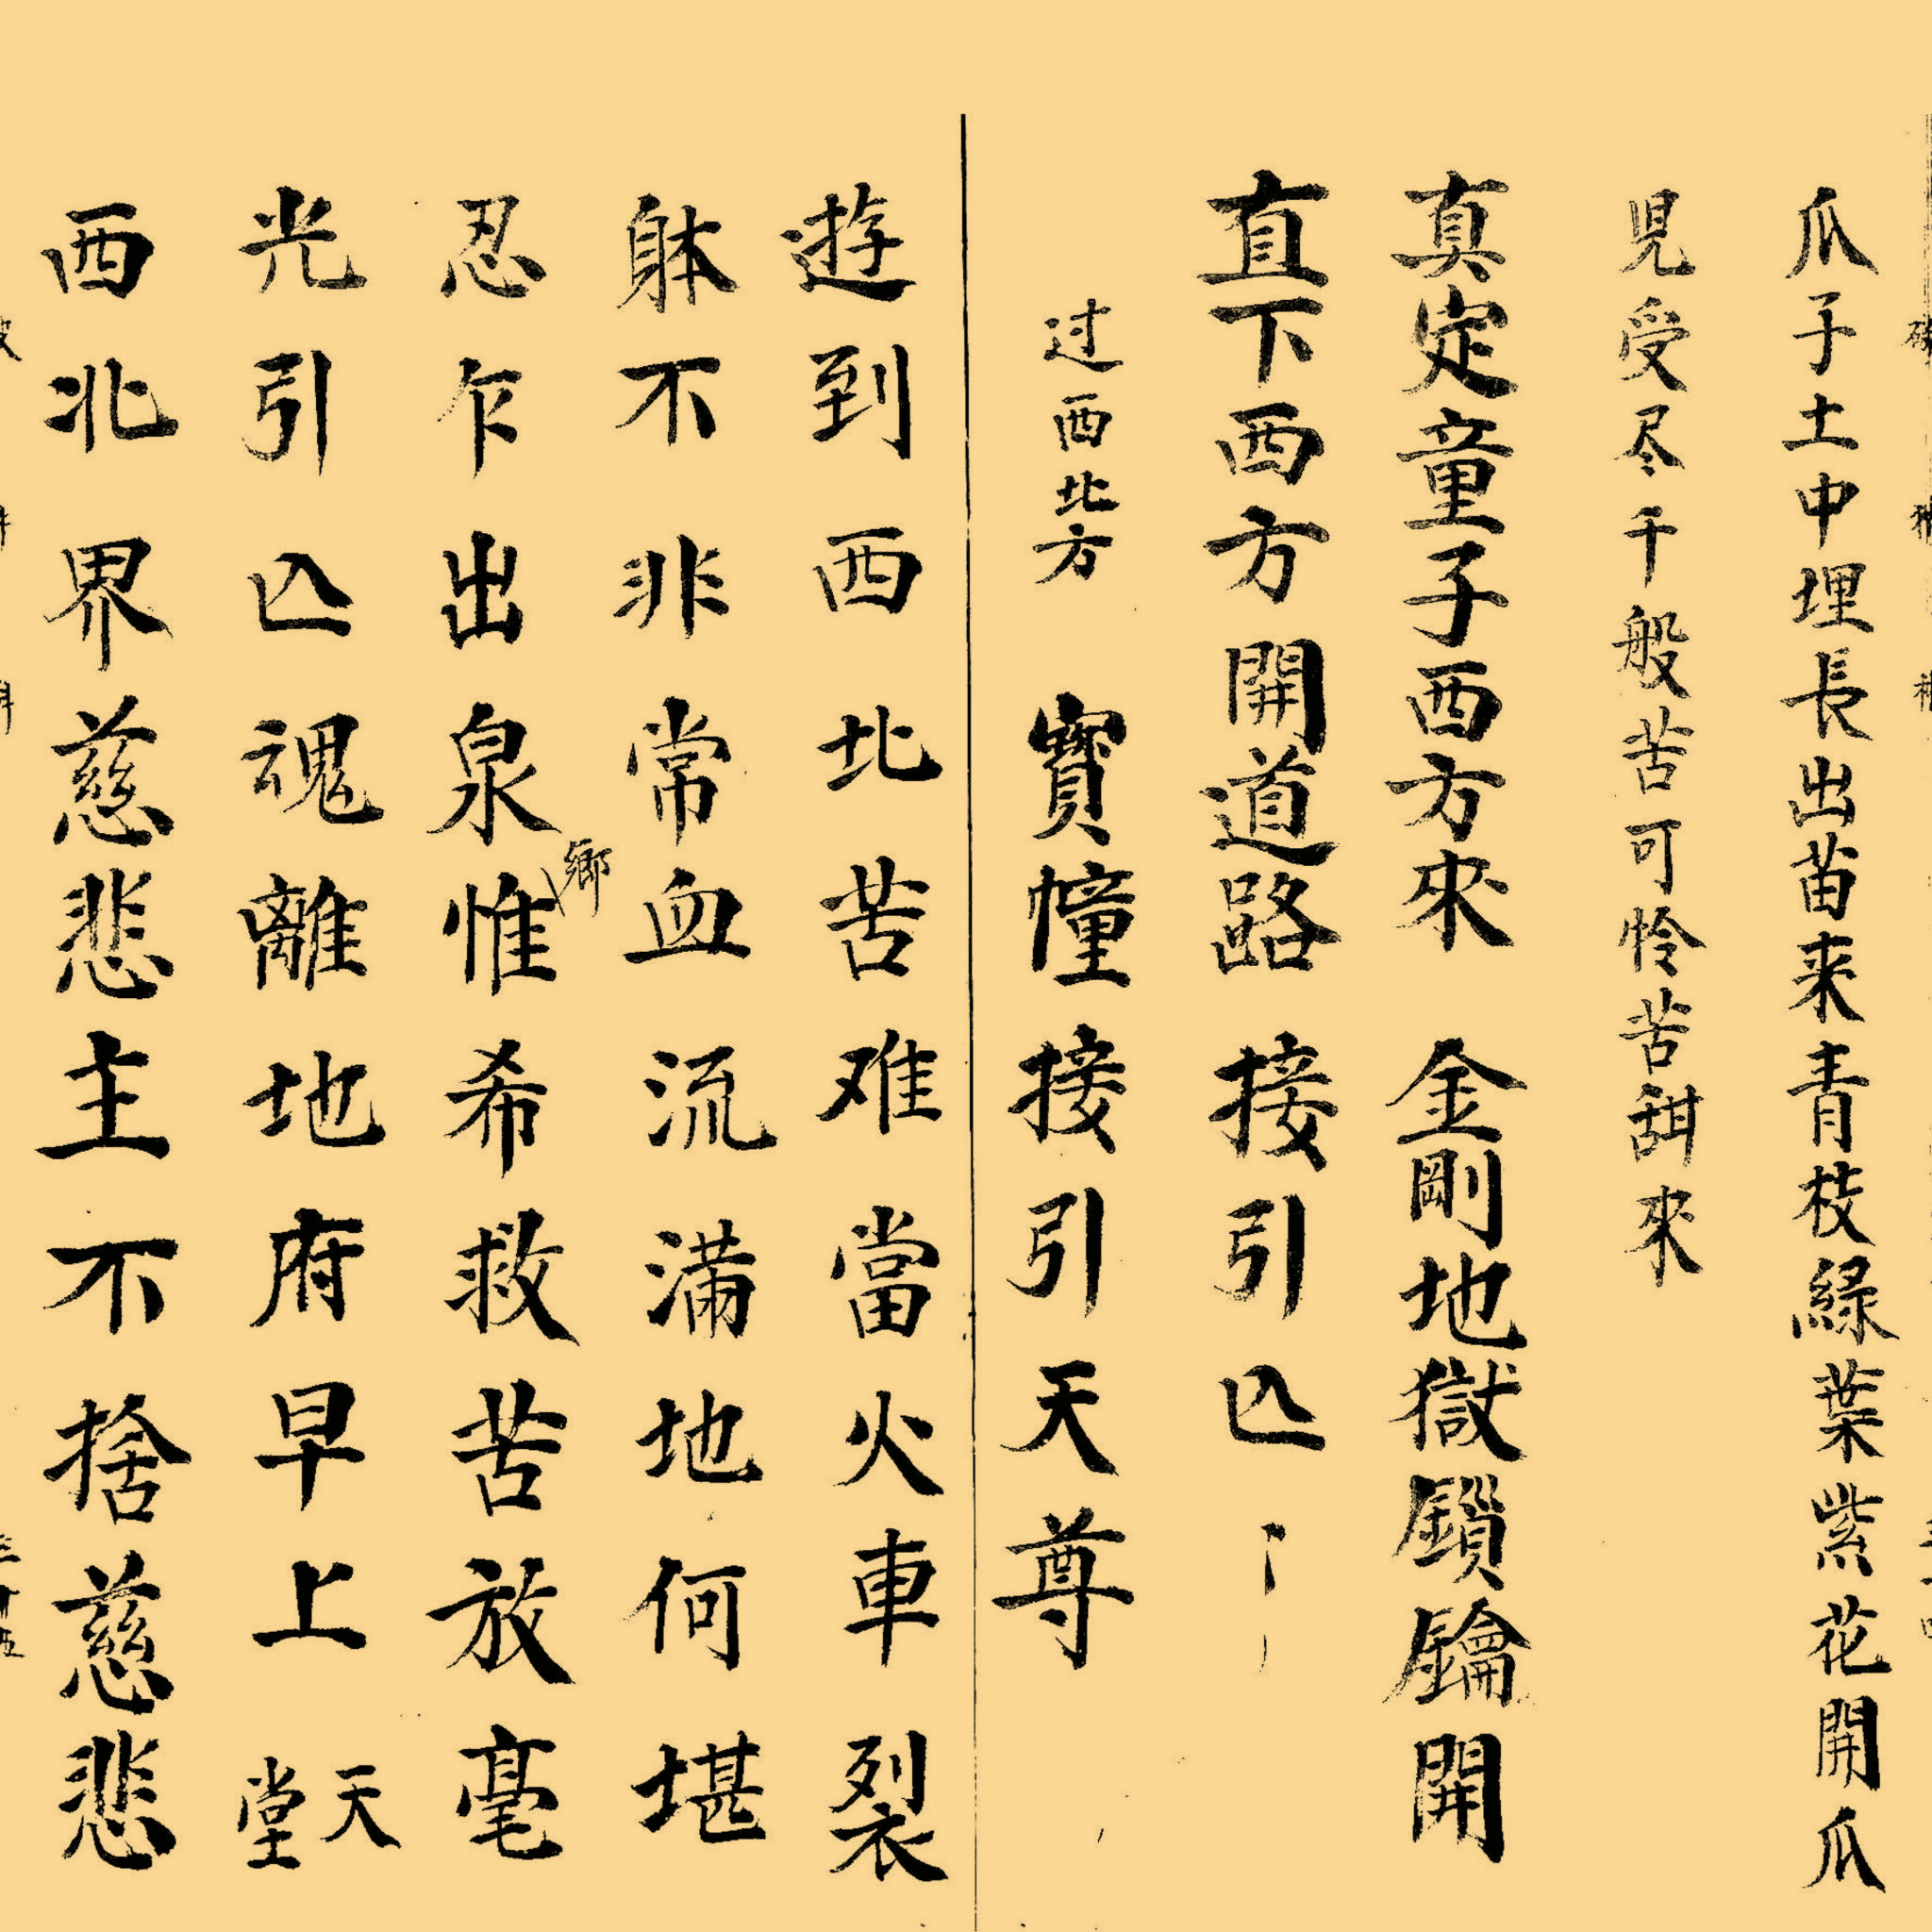 瓜子土中埋長出苗来青枝緑葉紫花開瓜
児受尽千般苦可怜苦甜來
真定童子西方來 金剛地獄鎖鑰開
直下西方開道路 接引亾
过西北方 寳幢接引天尊
遊到西北苦难當火車裂
躰不非常血流满地何堪
忍乍出泉惟希救苦放毫
鄉
光引亾魂離地府早上天堂
西北界慈悲主不捨慈悲